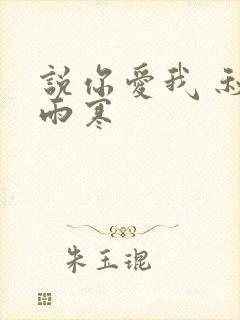 說你愛我
雨寒
朱玉琨